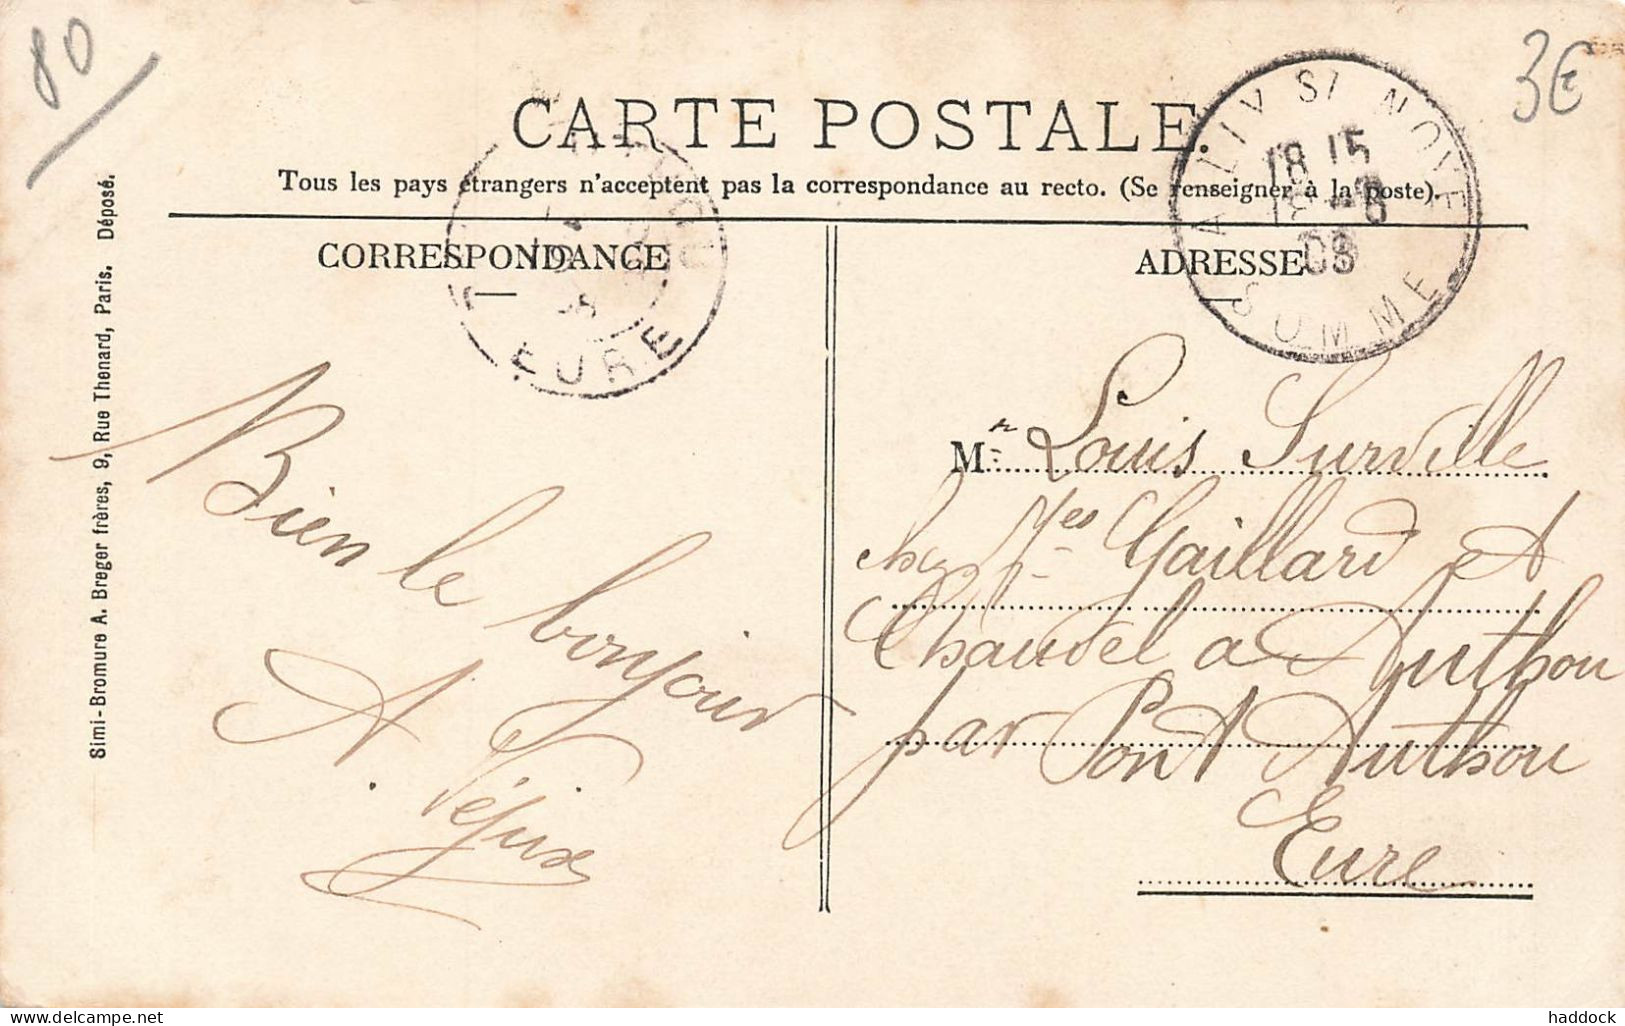 80
3€
CARTE POSTALE.
Tous les pays étrangers n'acceptent pas la correspondance au recto. (Se renseigner à la poste).
CORRESPONDANCE
ADRESSE
AILLY S/ NOYE
18 15
08
SOMME
EURE
Simi-Bromure A. Breger frères, 9, Rue Thenard, Paris. Déposé.
Bien le bonjour
A.
Mr Louis Surville
chez Mes Gaillard et
Chaudel a Authou
par Pont Authou
Eure
Delcampe.net
haddock